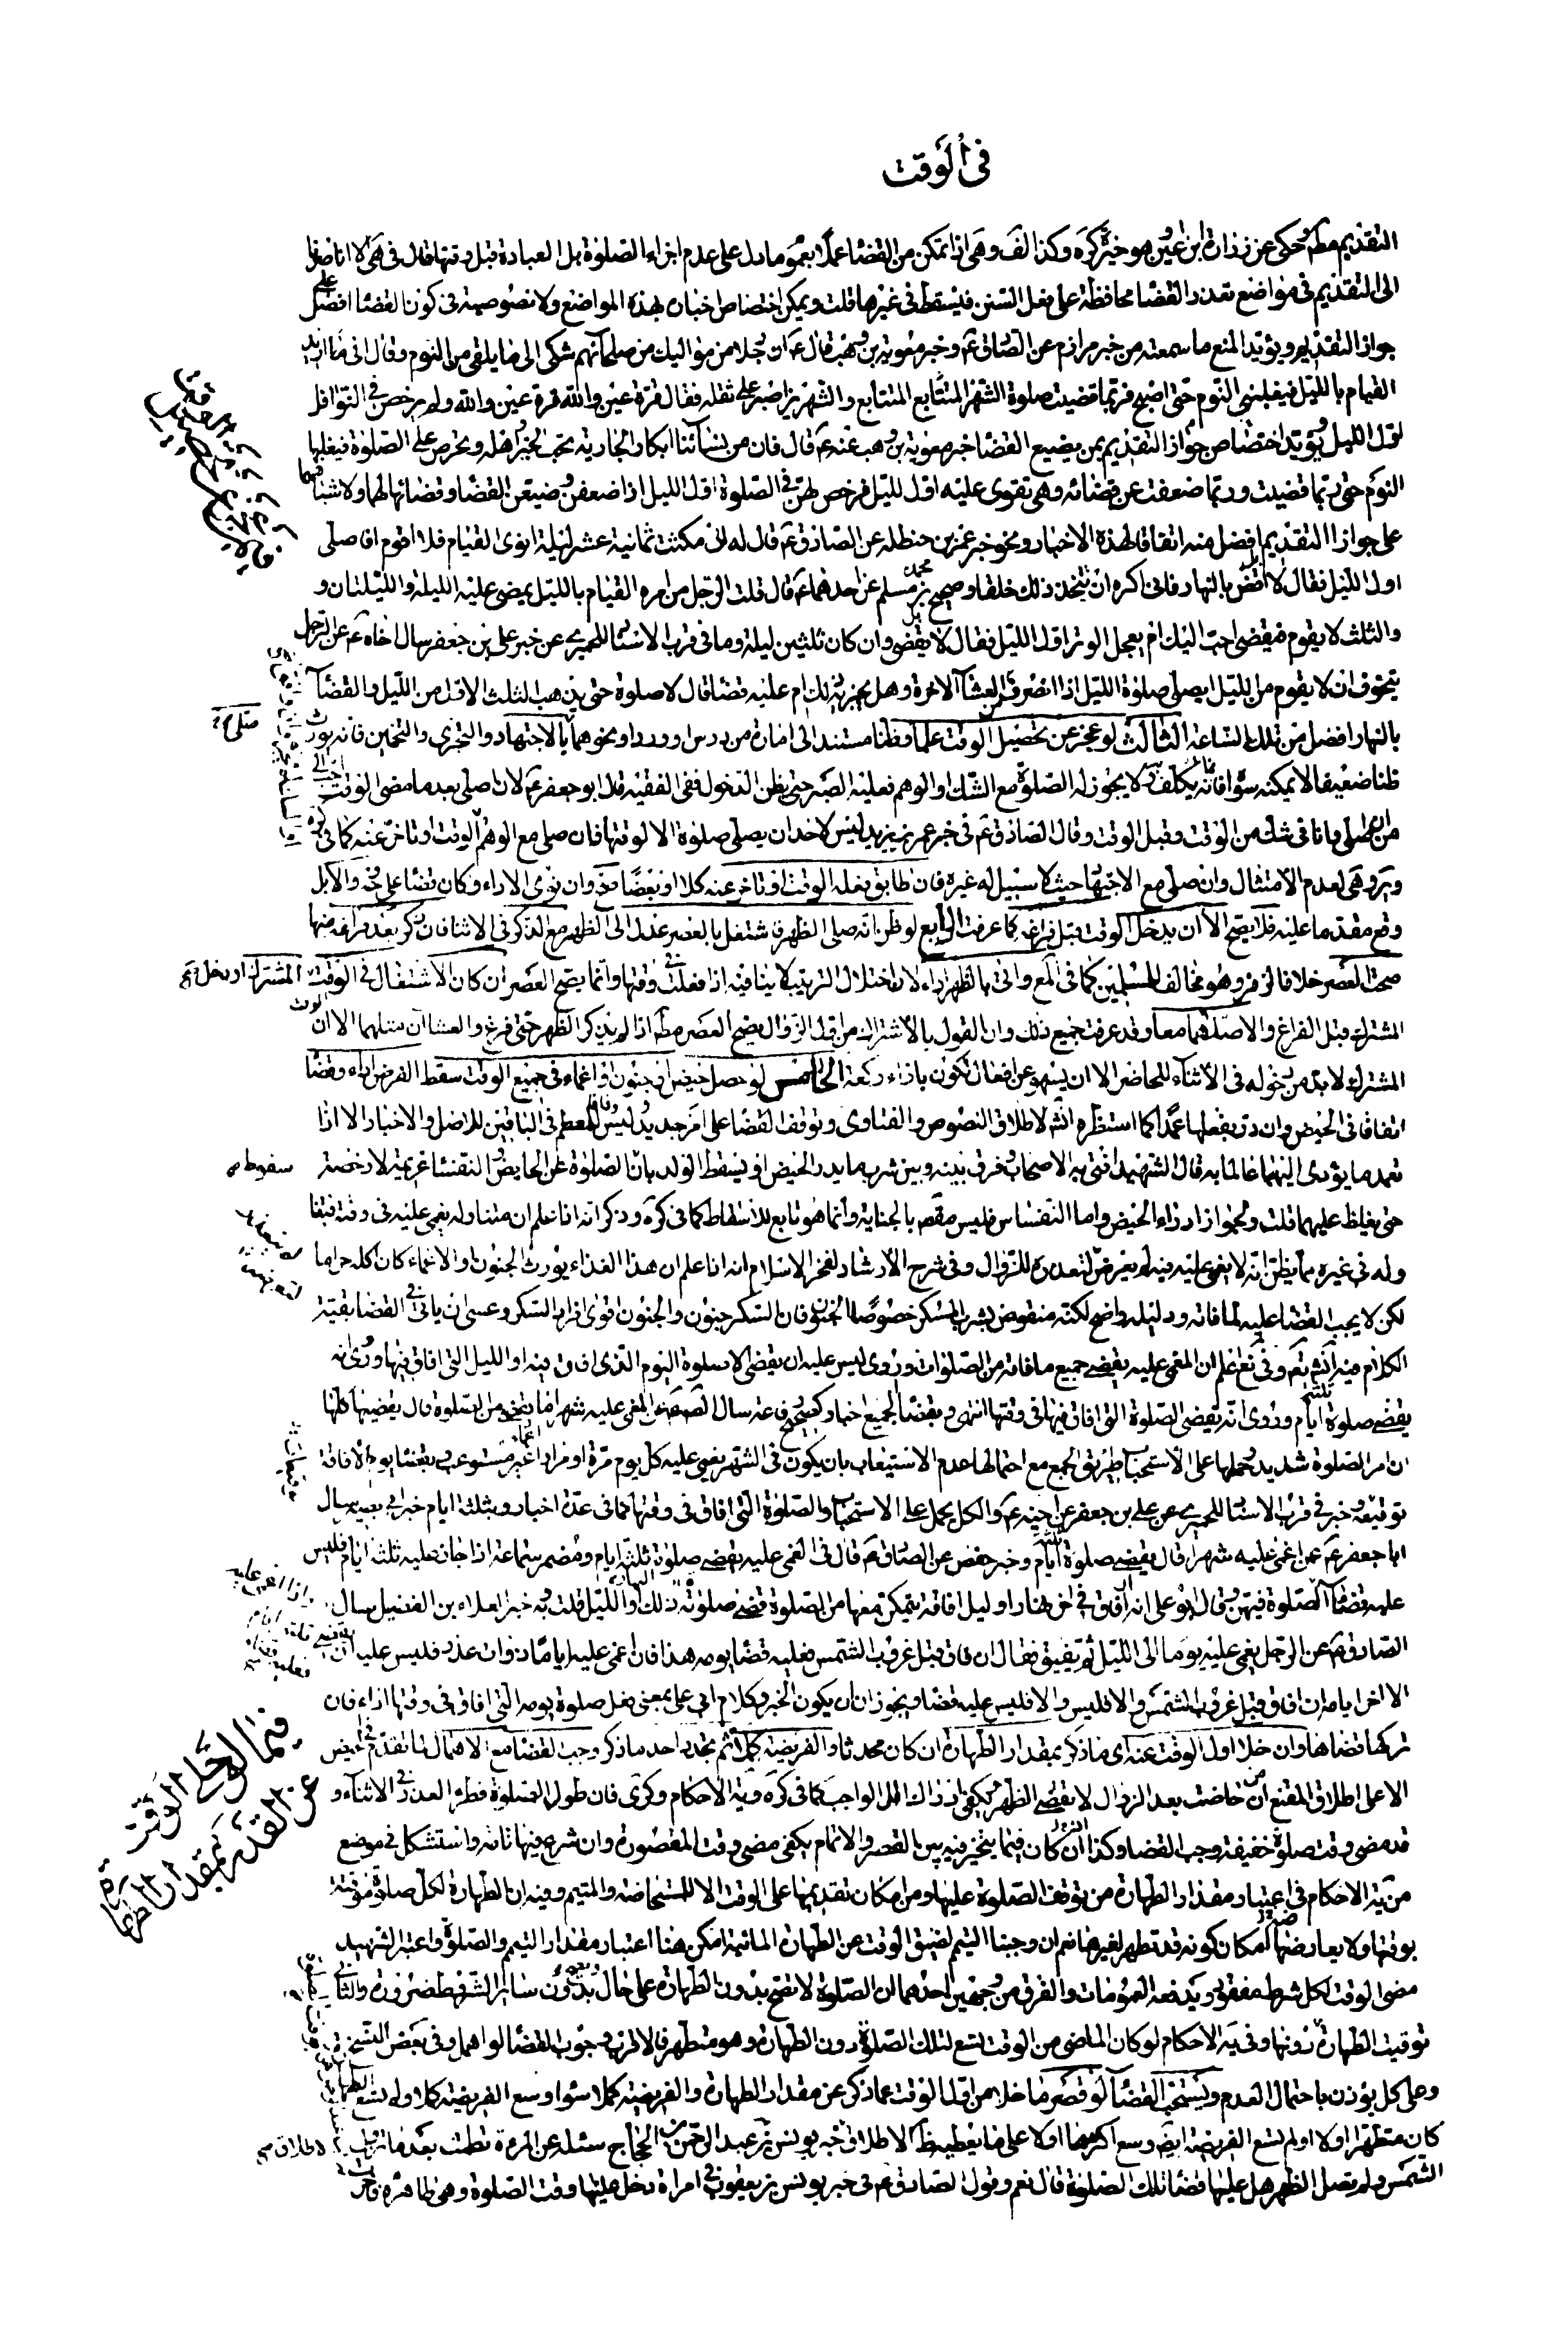 في الوقت
التقديم مطم وحكى عن زرارة ابن عين هو خيرة كره وكذا لف وهى اذا تمكن من القضا عملا بعموم مادل على عدم اجزاء الصلوة بل العبادة قبل وقتها قال في هى لا انا صرنا
الى التقديم في مواضع تعذر القضا محافظة على فعل السنن فيسقط في غيرها قلت ويمكن اختصاص اخباره بهذه المواضع ولا نصوصية في كون القضا افضل على
جواز التقديم ويؤيد المنع ما سمعته من خبر مرازم عن الصادق ع وخبر معوية بن وهب قال له ان رجلا من مواليك من صلحائهم شكى الى ما يلقى من النوم وقال اني اريد
القيام بالليل فيغلبني النوم حتى اصبح فربما قضيت صلوة الشهر المتتابع والشهرين اصبر على ثقله فقال قرة عين والله قرة عين والله ولم يرخص في النوافل
اول الليل ويؤيد اختصاص جواز التقديم بمن يضيع القضا خبر معوية بن وهب عنه ع قال فان من نسائنا ابكارا الجارية تحب الخير واهله وتحرص على الصلوة فيغلبها
النوم حتى ربما قضيت وربما ضعفت عن قضائه وهى تقوى عليه اول الليل فرخص لهن في الصلوة اول الليل اذا ضعفن وضيعن القضا
على جواز التقديم افضل منه اتفاقا لهذه الاخبار ونحو خبر عمر بن حنظله عن الصادق ع قال له انى مكثت ثمانية عشر ليلة انوى القيام فلا اقوم افاصلى
اول الليل فقال لا اقض بالنهار فانى اكره ان تتخذ ذلك خلقا وصحيح محمد بن مسلم عن احدهما ع قال قلت الرجل من امره القيام بالليل يمضى عليه الليلة والليلتان و
والثلث لا يقوم فيقضى احب اليك ام يعجل الوتر اول الليل فقال لا بل يقضى وان كان ثلثين ليلة وما في قرب الاسناد للحميرى عن خبر على بن جعفر سال اخاه ع عن الرجل
يتخوف ان لا يقوم من الليل ايصلى صلوة الليل اذا انصرف من العشا الاخرة وهل يجزيه ذلك ام عليه قضا قال لا صلوة حتى يذهب الثلث الاول من الليل والقضا
بالنهار افضل من تلك الساعة الثالث لو عجز عن تحصيل الوقت علما وظنا مستند الى امارة من درس او ورد او نحوهما بالاجتهاد والتحرى والتخمين فانه يورث
ظنا ضعيفا لا يمكنه سواه فانه لا يكلف لا يجوز له الصلوة مع الشك او الوهم فعليه الصبر حتى يظن الدخول ففى الفقيه قال ابو جعفر ع لان اصلى بعد ما مضى الوقت احب الى
من ان اصلى وانا في شك من الوقت وقبل الوقت وقال الصادق ع في خبر عمر بن يزيد ليس لاحد ان يصلى صلوة الا لوقتها فان صلى مع الوهم الوقت او تاخر عنه كما في
لعدم الامتثال وان صلى مع الاجتهاد حيث لا سبيل له غيره فان طابق فعله الوقت او تاخر عنه كلا او بعضا صح وان نوى الاداء وكان قضا على
وقع مقدما عليه فلا يصح الا ان يدخل الوقت قبل فراغه كما عرفت الرابع لو ظن انه صلى الظهر فاشتغل بالعصر عدل الى الظهر مع الذكر في الاثنا فان ذكر بعد فراغه منها
صحت العصر خلافا لزفر وهو مخالف للمسلمين كما في لمع واتى بالظهر اداء لان اختلال الترتيب لا ينافيه اذا فعلت في وقتها وانما يصح العصر ان كان الاشتغال في الوقت المشترك او دخل
المشترك قبل الفراغ والا صلاهما معا وقد عرفت جميع ذلك وان القول بالاشتراك من اول الزوال يصح العصر مطم اذا لم يذكر الظهر حتى فرغ والعشاان مثلهما الا ان الوقت
المشترك لابد من دخوله في الاثناء للحاضر الا ان يسهو عن افعال تكون بازاء ركعة الخامس لو حصل حيض او جنون او اغماء في جميع الوقت سقط الفرض اداء وقضا
اتفاقا في الحيض وان كان بفعلها عمدا كما استظهره لاطلاق النصوص والفتاوى وتوقف القضا على امر جديد وليس وفاقا للمعظم في الباقين للاصل والاخبار الا اذا
تعمد ما يؤدى اليهما عالما به قال الشهيد افتى به الاصحاب وفرق بينه وبين شرب ما يدر الحيض او يسقط الولد بان الصلوة عن الحايض والنفسا عزيمة لا رخصة
حتى يغلظ عليهما قلت ولجواز ادراء الحيض واما النفساس فليس مقصم بالجناية وانما هو تابع للاسقاط كما في كره وذكر انه اذا علم ان متناوله يغمى عليه في وقته فتناوله
وله في غيره مما يظن انه لا يغمى عليه فيه لم يعرض لتعديه للزوال وفى شرح الارشاد لفخر الاسلام انه اذا علم ان هذا الغذاء يورث الجنون والاغماء كان اكله حراما
لكن لا يجب القضا عليه لما فاته ودليله واضح لكنه منقوض بشرب المسكر خصوصا الجنون فان السكر جنون والجنون اقوى افراد السكر وعسى ان ياتى في القضا بقية
الكلام فيه انشاء الله تعم وفى نع اعلم ان المغمى عليه يقضى جميع ما فاته من الصلوات وروى ليس عليه ان يقضى الا صلوة اليوم الذى افاق فيه او الليل التى افاق فيها وروى انه
يقضى صلوة ثلثة ايام وروى انه يقضى الصلوة التى افاق فيها في وقتها انتهى وبقضا الجميع اخبار كصحيح رفاعة سال الصادق ع عن المغمى عليه شهرا ما يقضى من الصلوة قال يقضيها كلها
ان امر الصلوة شديد وحملها على الاستحباب طريق الجمع مع احتمالها عدم الاستيعاب بان يكون في الشهر يغمى عليه كل يوم مرة او مرارا اغماء غير مستوعب وبقضا يوم الافاقة
توقيعه وخبر في قرب الاسناد للحميرى عن على بن جعفر عن اخيه ع والكل يحمل على الاستحباب والصلوة التى افاق في وقتها كما في عدة اخبار وبثلثة ايام خبر ابى بصير سال
ابا جعفر ع عمن اغمى عليه شهرا قال يقضى صلوة ثلثة ايام وخبر حفص عن الصادق ع قال في المغمى عليه يقضى صلوة ثلثة ايام ومضمر سماعة اذا جاز عليه ثلثة ايام فليس
عليه قضا الصلوة فيهن وقال ابو على انه ان افاق في اخر نهاره او ليل افاقة يتمكن معها من الصلوة قضى صلوته ذلك النهار والليل قلت وبه خبر العلاء بن الفضيل سال
الصادق ع عن الرجل يغمى عليه يوما الى الليل ثم يفيق فقال ان افاق قبل غروب الشمس فعليه قضا يومه هذا فان اغمى عليه اياما ذوات عدد فليس عليه ان يقضى
الا اخر ايامه ان افاق قبل غروب الشمس والا فليس عليه قضا ويجوز ان يكون الخبر وكلام ابى على بمعنى فعل صلوة يومه التى افاق في وقتها اداء فان
تركها قضاها وان خلا اول الوقت عنه اى ما ذكر بمقدار الطهارة ان كان محدثا والفريضة كملا ثم تجدد احد ما ذكر وجب القضا مع الاهمال لما تقدم في الحيض
الا على اطلاق المقنع ان من حاضت بعد الزوال لا تقضى الظهر ويكفى ادراك اقل الواجب كما في كره وية الاحكام وكرى فان طول الصلوة فطرء العذر في الاثناء و
قد مضى وقت صلوة خفيفة وجب القضا وكذا ان كان فيما يتخير فيه بين القصر والاتمام يكفى مضى وقت المقصورة وان شرع فيها تامة واستشكل في موضع
من ية الاحكام في اعتبار مقدار الطهارة من توقف الصلوة عليها ومن امكان تقديمها على الوقت الا للمستحاضة والمتيمم وفيه ان الطهارة لكل صلوة موقتة
بوقتها ولا يعارضها امكان كونه قد تطهر لغيرها نعم ان اوجبنا التيمم لضيق الوقت عن الطهارة المائية امكن هنا اعتبار مقدار التيمم والصلوة واعتبر الشهيد
مضى الوقت لكل شرط مفقود ويدفعه العمومات والفرق من وجهين احدهما ان الصلوة لا تصح بدون الطهارة على حال وتصح بدون سائر الشروط ضرورة والثانى
توقيت الطهارة دونها وفى ية الاحكام لو كان الماضى من الوقت يسع لتلك الصلوة دون الطهارة وهو متطهر فالاقرب وجوب القضا لو اهمل وفى بعض النسخ
وعلى كل يؤذن باحتمال العدم ويستحب القضا لو قصر ما خلا من اول الوقت عما ذكر عن مقدار الطهارة والفريضة كملا سواء وسع الفريضة كملا ولم يسع الطهارة
كان متطهرا اولا او لم يسع الفريضة ايضم وسع اكثرهما اولا على ما يعطيه ظ الاطلاق خبر يونس بن عبد الرحمن بن الحجاج سئله عن المرءة تطمث بعد ما تزول
الشمس ولم تصل الظهر هل عليها قضا تلك الصلوة قال نعم وقول الصادق ع في خبر يونس بن يعقوب في امراة دخل عليها وقت الصلوة وهى طاهرة فاخرت
فيما لو خلا الوقت
عن القدر بمقدار الطهارة